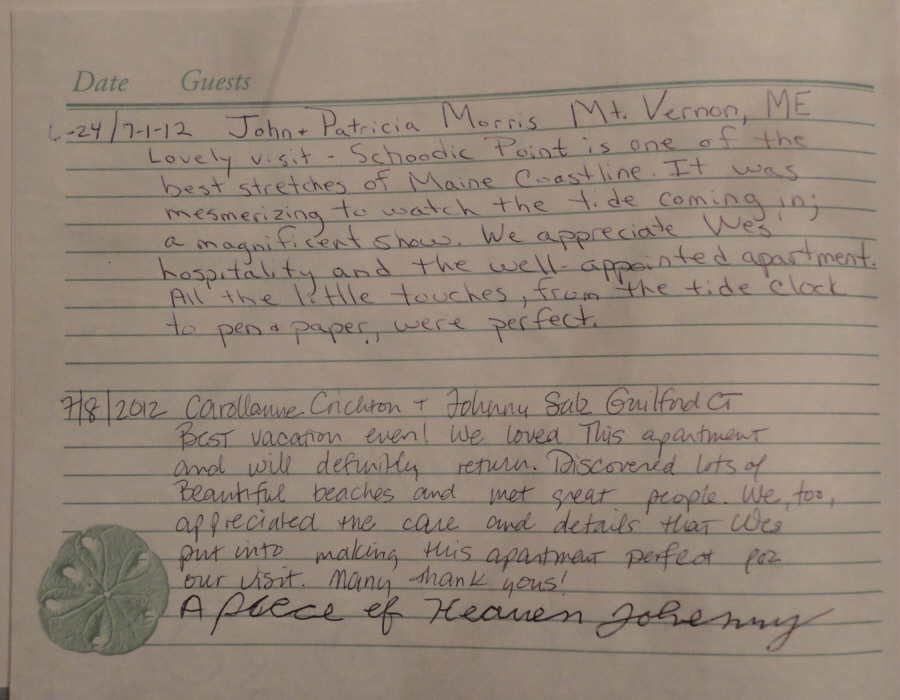 Date Guests
6-24/7-1-12 John + Patricia Morris Mt. Vernon, ME
Lovely visit - Schoodic Point is one of the
best stretches of Maine Coastline. It was
mesmerizing to watch the tide coming in;
a magnificent show. We appreciate Wes'
hospitality and the well-appointed apartment.
All the little touches, from the tide clock
to pen & paper, were perfect.
7/8/2012 Carollanne Crichton + Johnny Salz Guilford CT
Best vacation ever! We loved This apartment
and will definitly return. Discovered lots of
Beautiful beaches and met great people. We, too,
appreciated the care and details that Wes
put into making this apartment perfect for
our visit. Many thank yous!
A piece of Heaven Johnny